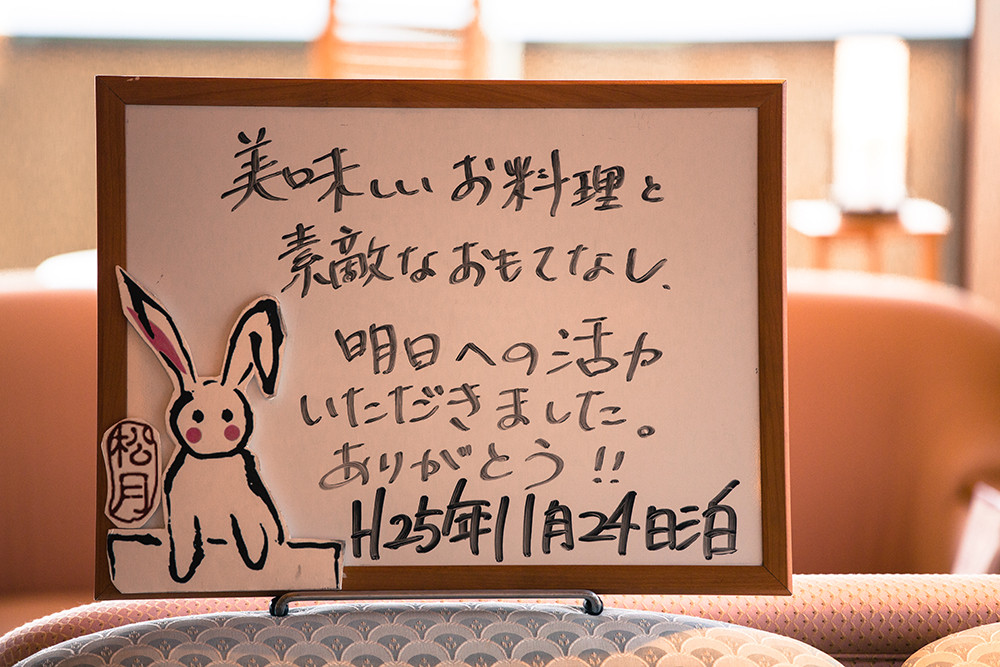 美味しいお料理と
素敵なおもてなし、
明日への活力
いただきました。
ありがとう!!
H25年11月24日泊
松月